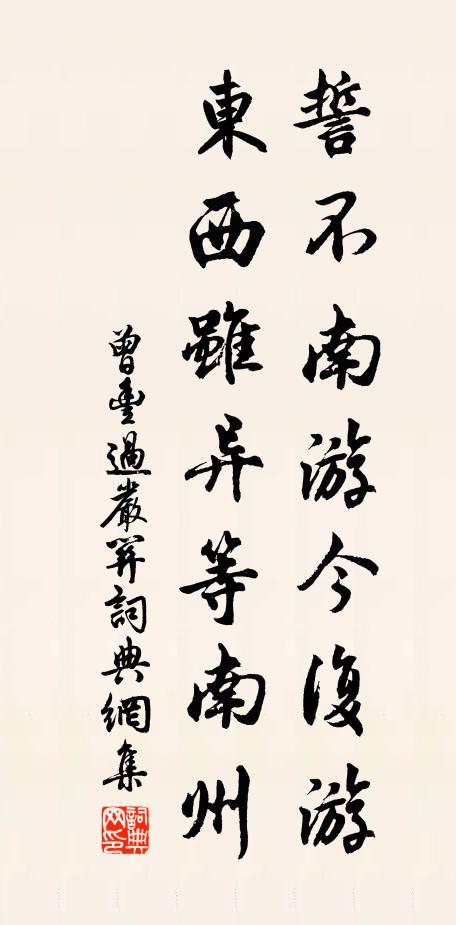 誓不南游今復游
東西雖异等南州
曾豐過嚴關詞典網集
詞典網印